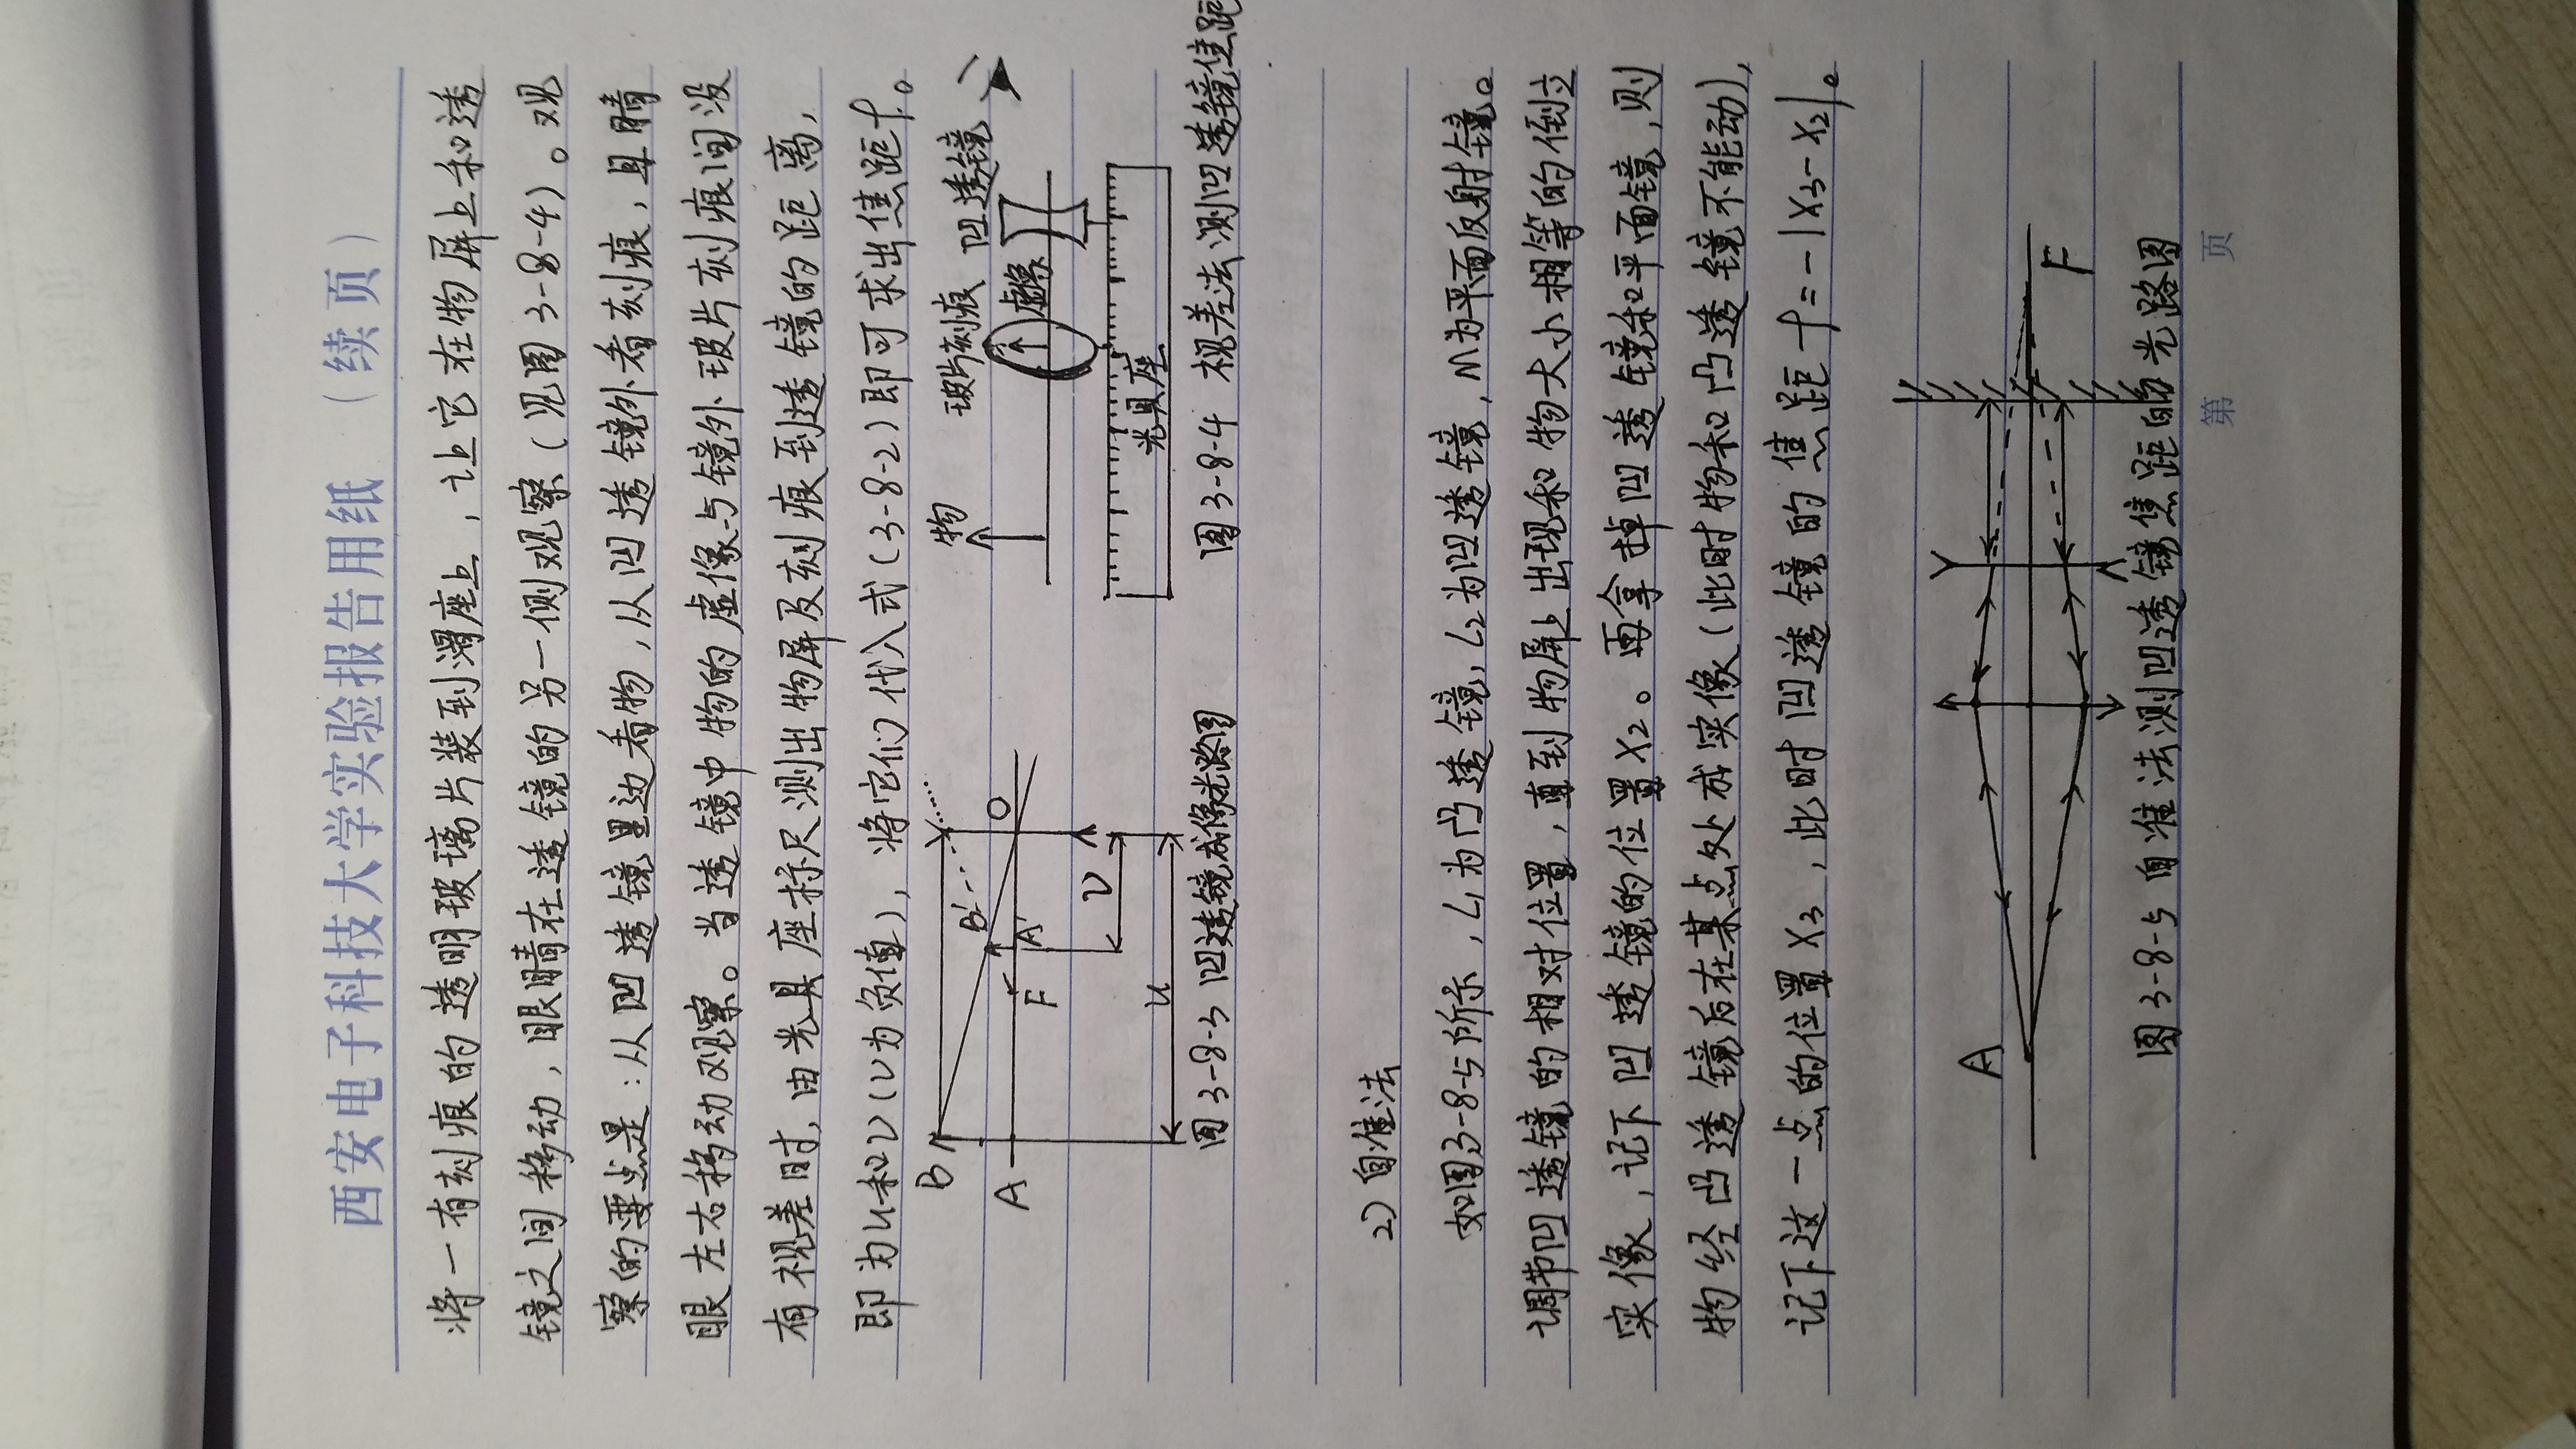 西安电子科技大学实验报告用纸（续页）
将一有刻痕的透明玻璃片装到滑座上，让它在物屏上和透
镜之间移动，眼睛在透镜的另一侧观察（见图3-8-4）。观
察的要点是：从凹透镜里边看物，从凹透镜外看刻痕，且睛
眼左右移动观察。当透镜中物的虚像与镜外玻片刻痕间没
有视差时，由光具座标尺测出物屏及刻痕到透镜的距离，
即为u和v（v为负值），将它们代入式（3-8-2）即可求出焦距f。
B
A
B'
A'
F
O
v
u
图3-8-3 凹透镜成像光路图
物
玻片刻痕
凹透镜
虚像
光具座
图3-8-4 视差法测凹透镜焦距
2）自准法
如图3-8-5所示，L1为凸透镜，L2为凹透镜，M为平面反射镜。
调节凹透镜的相对位置，直到物屏上出现和物大小相等的倒立
实像，记下凹透镜的位置X2。再拿掉凹透镜和平面镜，则
物经凸透镜后在某点处成实像（此时物和凸透镜不能动），
记下这一点的位置X3，此时凹透镜的焦距f=-|X3-X2|。
A
F
图3-8-5 自准法测凹透镜焦距的光路图
第 页